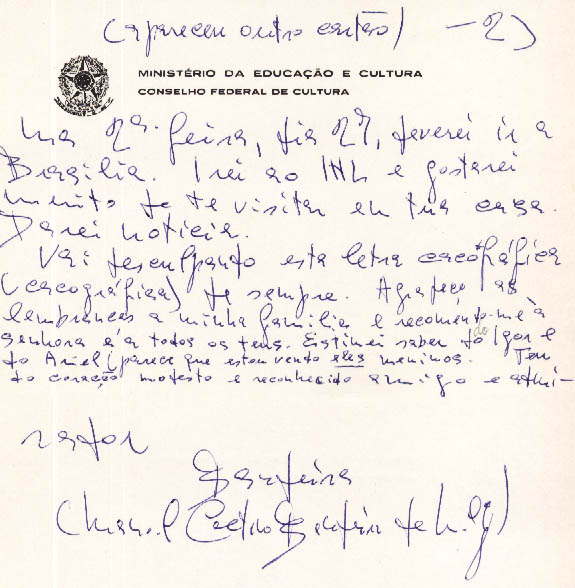 (apareceu outro cartão) — 2)
MINISTÉRIO DA EDUCAÇÃO E CULTURA
CONSELHO FEDERAL DE CULTURA
Na 2ª feira, dia 27, deverei ir a
Brasília. Irei ao INL e gostarei
muito de te visitar em tua casa.
Darei notícia.
Vai desculpando esta letra cacófráfica
(cacográfica) de sempre. Agradeço as
lembranças a minha família e recomendo-me à
senhora e a todos os teus. Estimei saber do Igor e
do Ariel (parece que estou vendo eles meninos. Teu
do coração, modesto e reconhecido amigo e admi-
rador
Bandeira
(Manoel Caetano Bandeira de